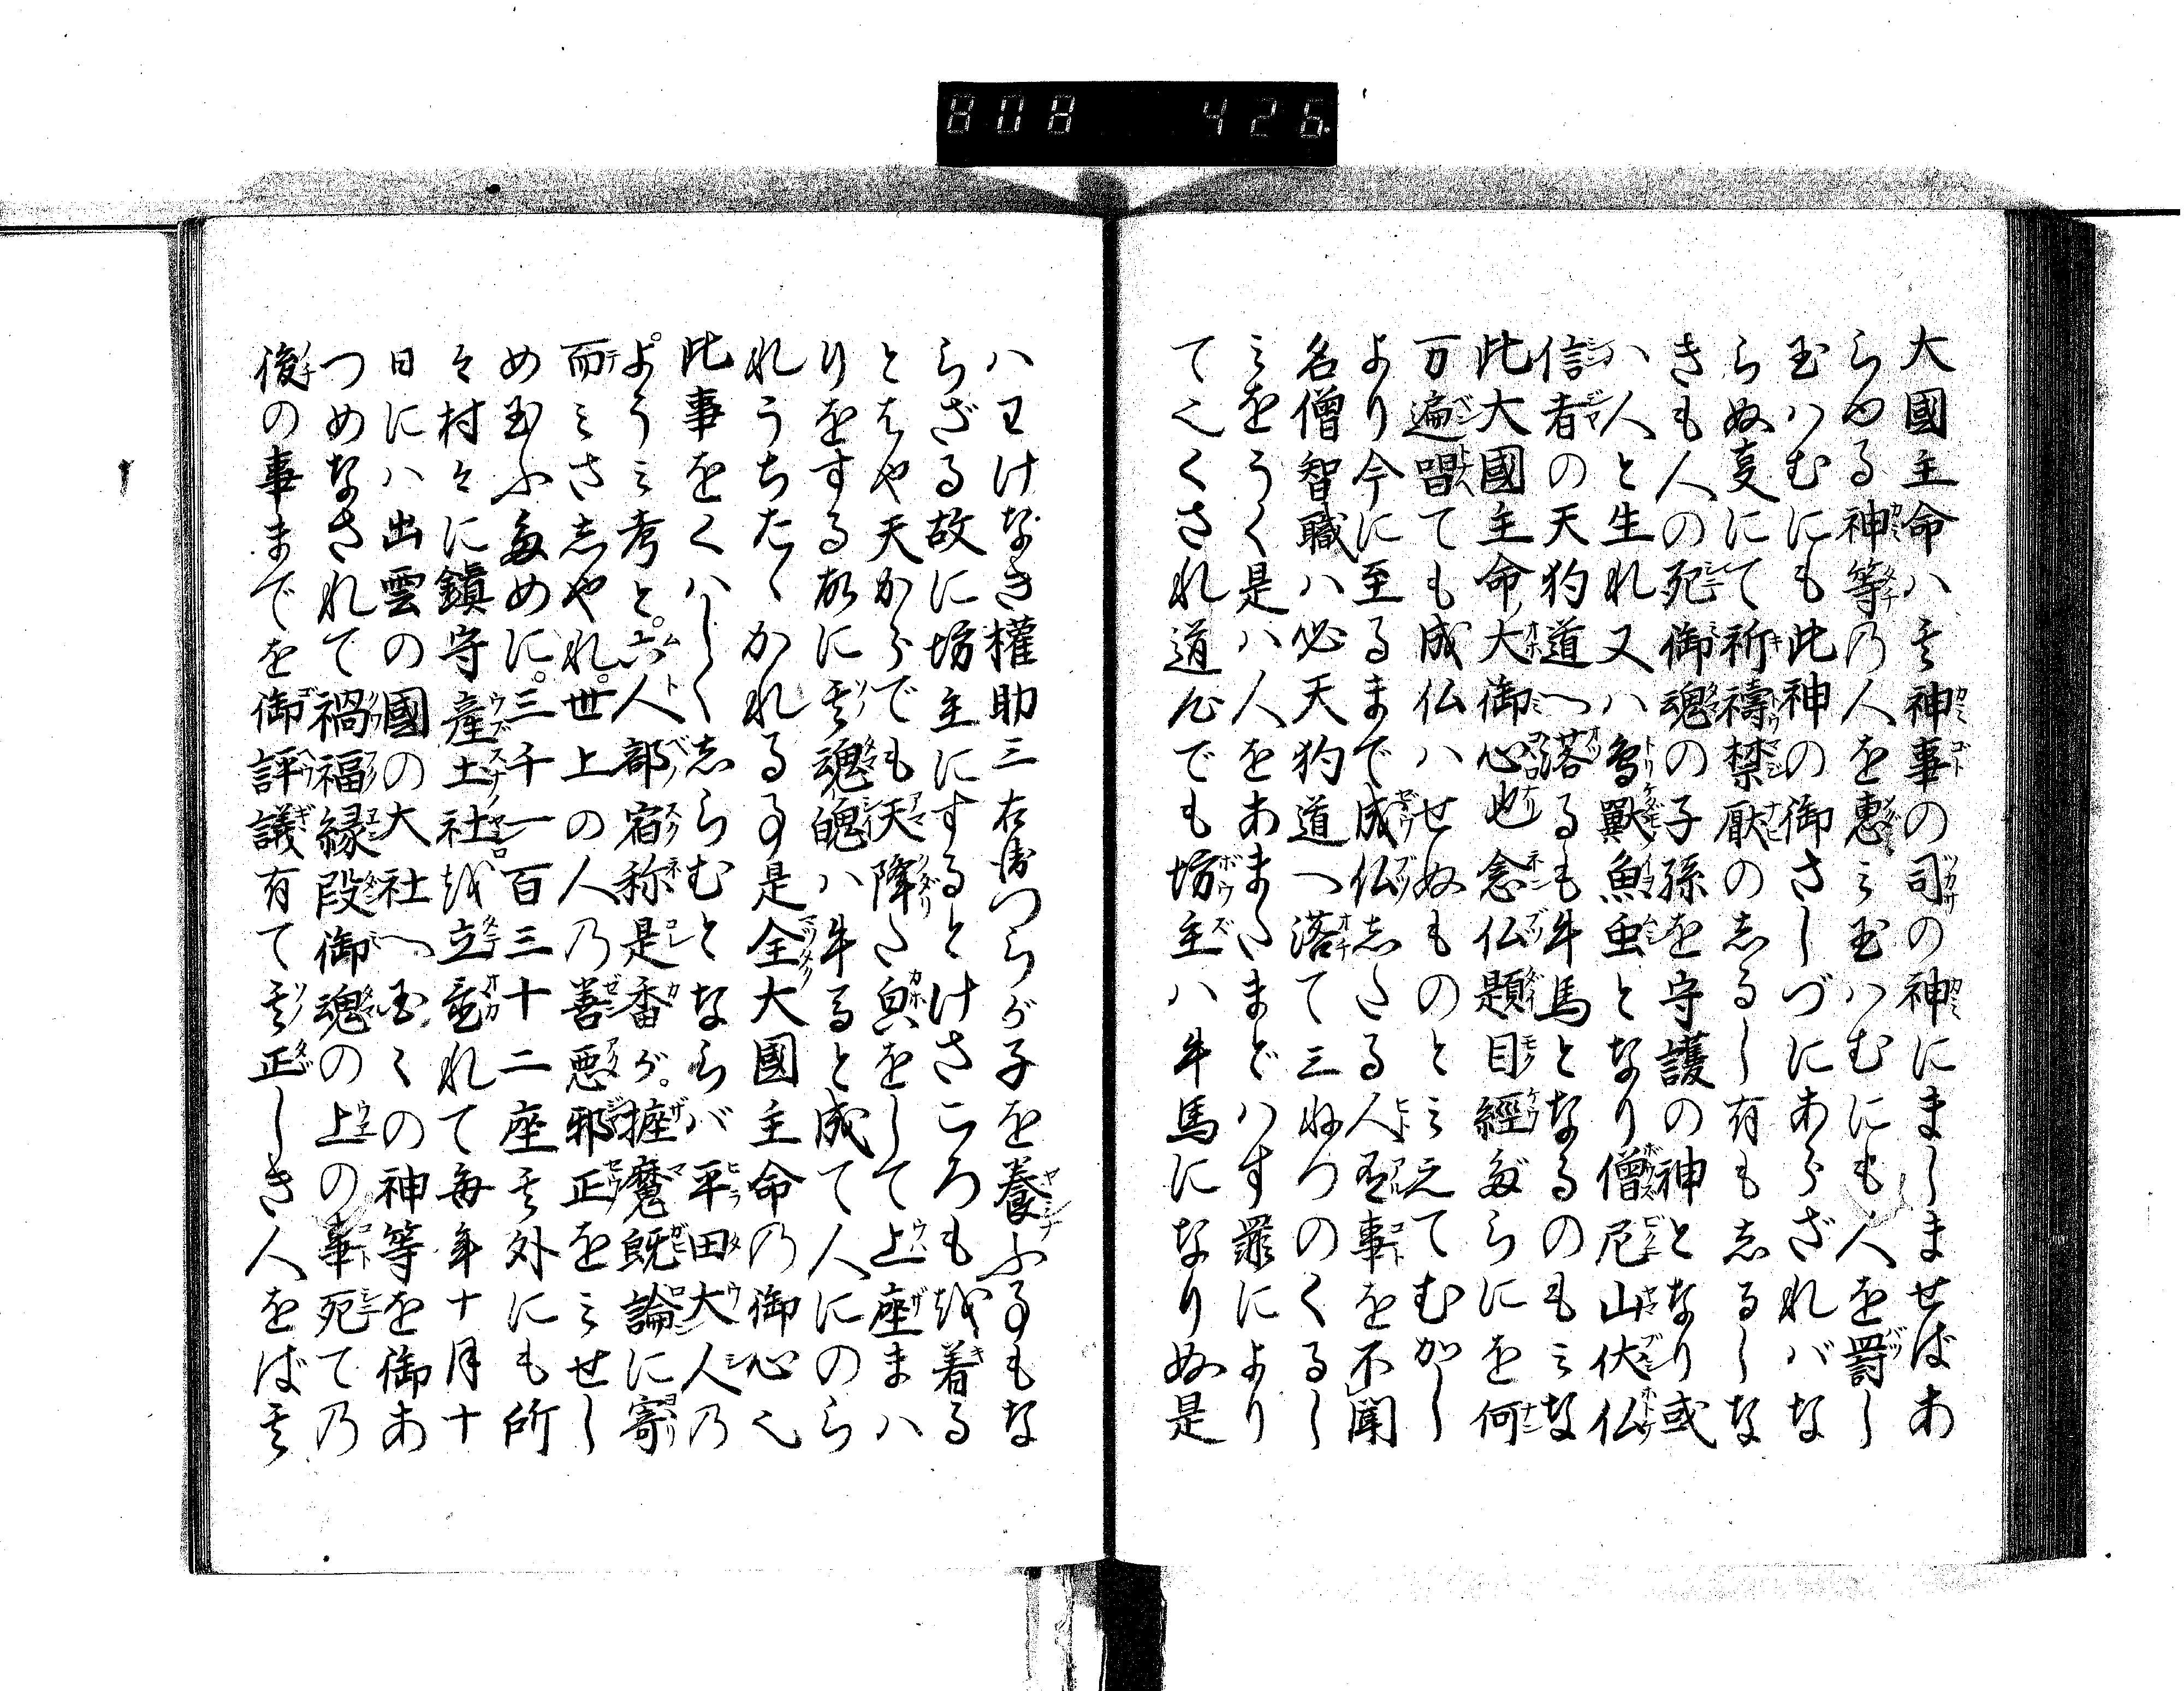 808 426
大國主命ハ其神事の司の神にましませばあ
らゆる神等乃人を恵ミ玉ハむにも人を罰し
玉ハむにも此神の御さしづにあらざれバな
らぬ㕝にて祈禱禁厭のしるし有もしるしな
きも人の死御魂の子孫を守護の神となり或
ハ人と生れ又ハ鳥獣魚虫となり僧尼山伏仏
信者の天狗道へ落るも牛馬となるのもミな
此大國主命ノ大御心也念仏題目經だらにを何
万遍唱ても成仏ハせぬものとミえてむかし
より今に至るまで成仏したる人有事を不聞
名僧智職ハ必天狗道へ落て三ねつのくるし
ミをうく是ハ人をあまたまどハす罪により
てんくされ道心でも坊主ハ牛馬になりぬ是
ハわけなき權助三右衛つらが子を養ふ事もな
らざる故に坊主にするとけさころも越着る
とはや天からでも天降た㒵をして上座まハ
りをする故に其魂魄ハ牛馬と成て人にのら
れうちたゝかれる事是全大國主命乃御心
此事をくハしくしらむとならバ平田大人乃
ようミ考と。六人部宿称是香が。搥魔既論に寄
而ミさしやれ。世上の人乃善悪邪正をミせし
め玉ふ為めに。三千一百三十二座其外にも所
々村々に鎮守産土社越立置れて毎年十月十
日にハ出雲の國の大社へ国々の神等を御あ
つめなされて禍福縁段御魂の上の事死て乃
後の事までを御評議有て其正しき人をば其